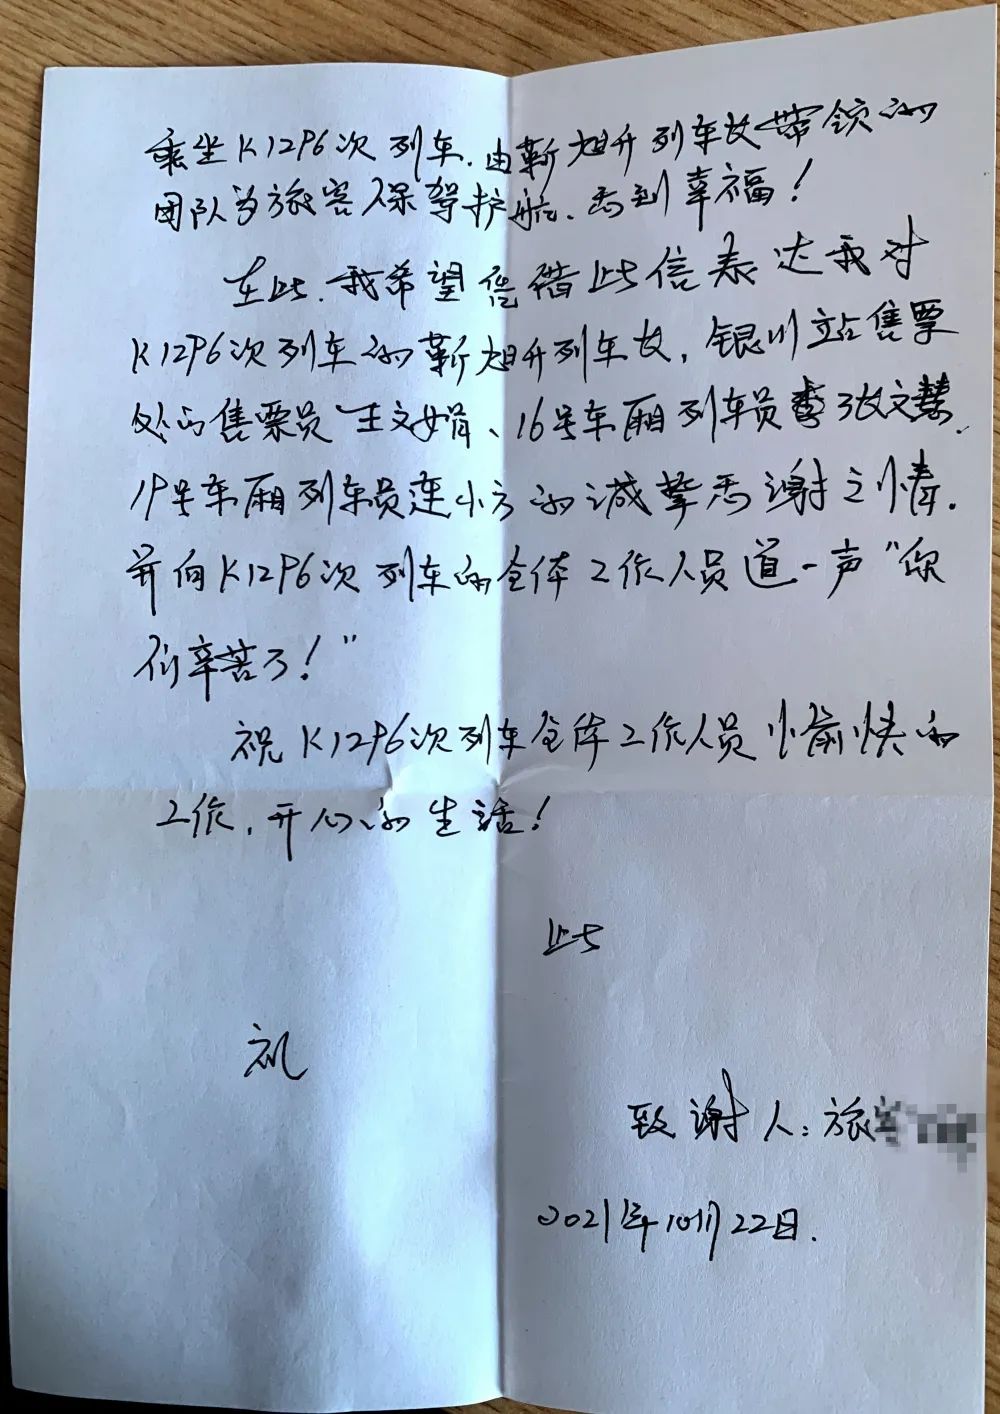 乘坐K1296次列车.由靳旭升列车长带领的
团队为旅客保驾护航、感到幸福!
在此.我希望凭借此信表达我对
K1296次列车的靳旭升列车长,银川站售票
处的售票员王文娟、16号车厢列车员张文慧、
19号车厢列车员连小方的诚挚感谢之情.
并向K1296次列车的全体工作人员道一声“你
们辛苦了!”
祝K1296次列车全体工作人员愉快的
工作,开心的生活!
此
礼
致谢人:旅客
2021年10月22日.